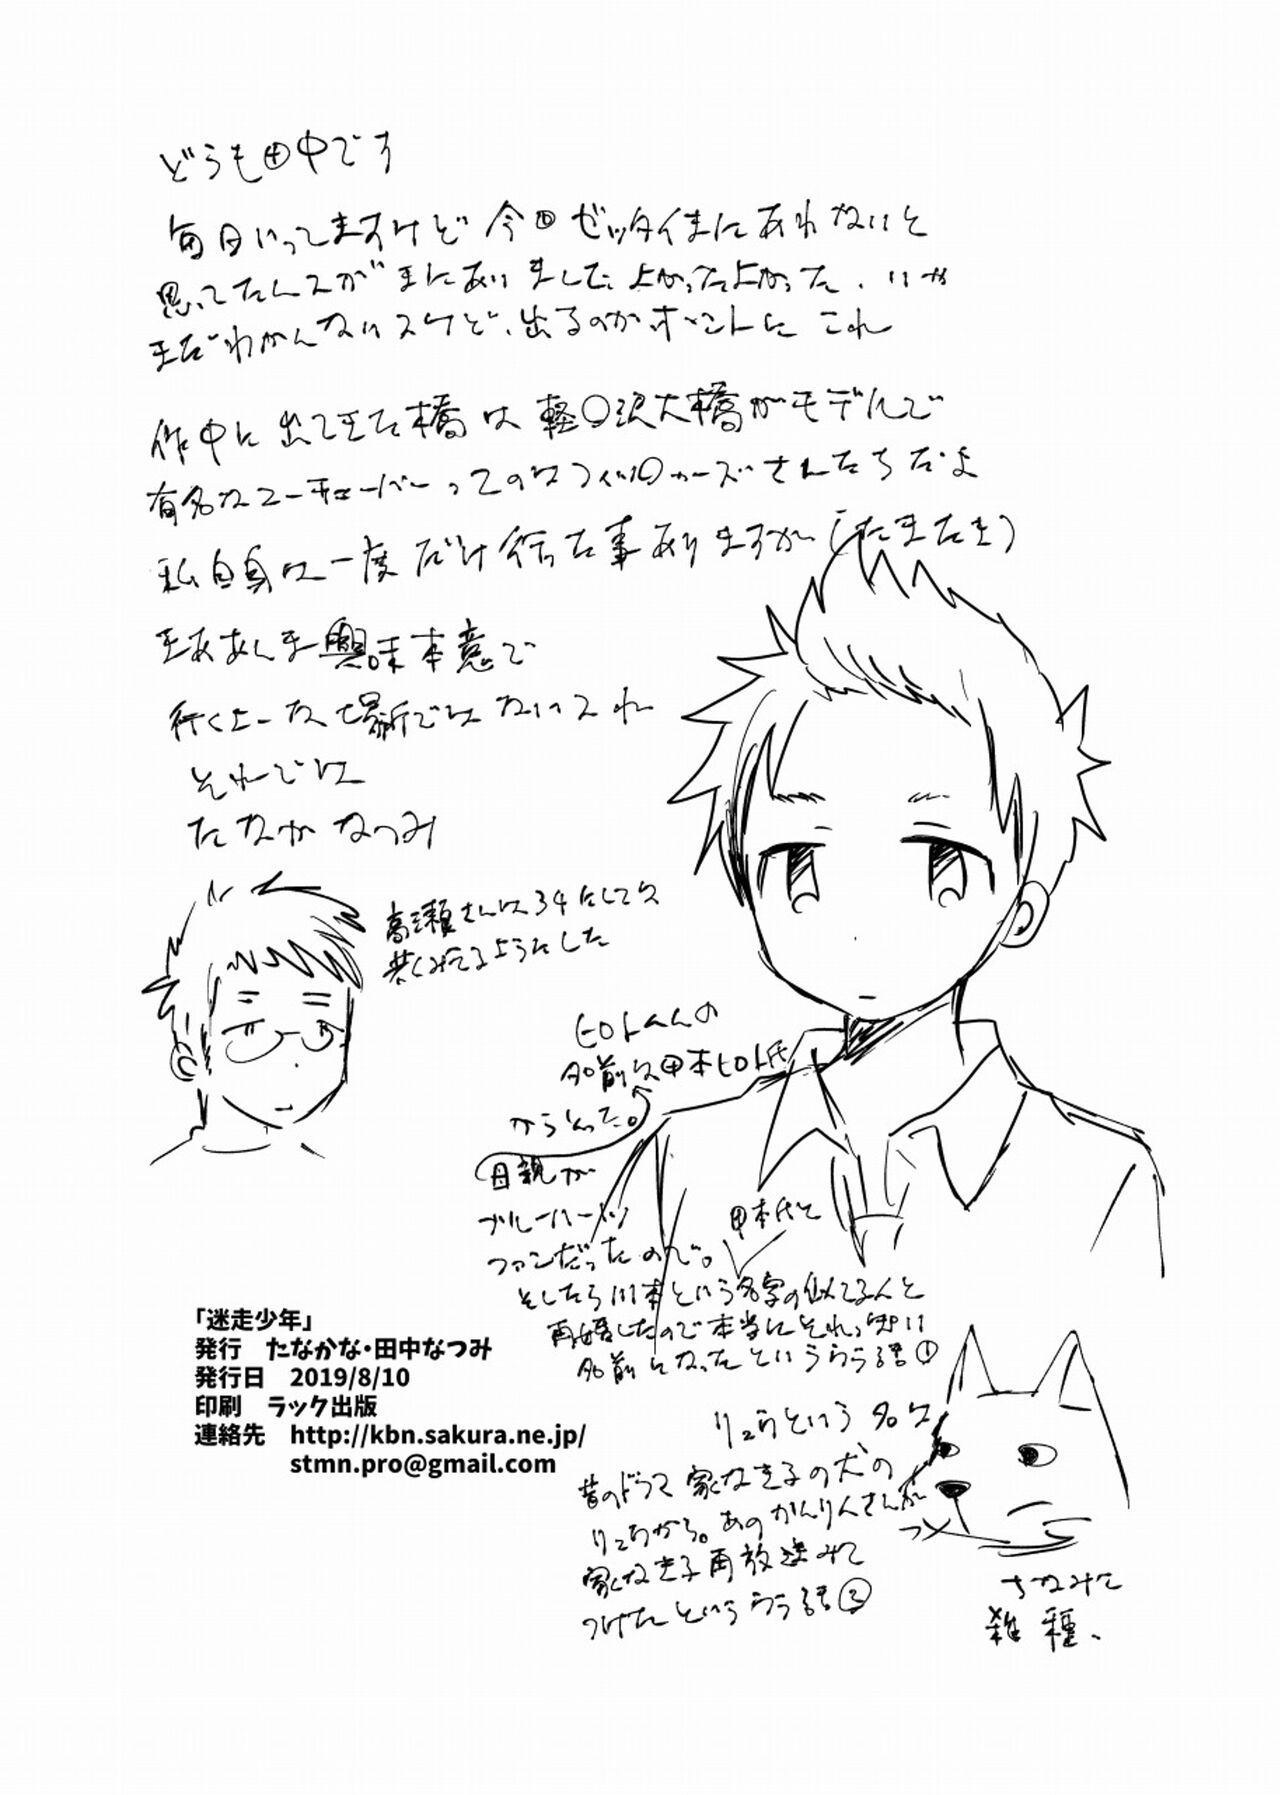 どうも田中です
毎日いってますけど 今回ゼッタイまにあわないと
思ってたんスがまにあいました よかったよかった、いや
まだわかんないスけど、出るのかホントに これ
作中に出てきた橋は 軽〇沢大橋がモデルで
有名なユーチューバーってのはフィッ〇カーズさんたちだよ
私自身は一度だけ行った事ありますが(たまたま)
まああんま興味本意で
行くよーな場所ではないスね
それでは
たなかなつみ
高瀬さんは34にしては
若くみえるようにした
ヒロトくんの
名前は甲本ヒロト氏
からとった。
母親が
ブルーハーツ
ファンだったので。
甲本氏と
そしたら川本という名字の似てる人と
再婚したので本当にそれっぽい
名前になったというウラ話①
りゅうという名は
昔のドラマ 家なき子の犬の
りゅうから。あのかんりんさんが
家なき子再放送みて
つけたというウラ話②
ちなみに
雑種、
「迷走少年」
発行 たなかな・田中なつみ
発行日 2019/8/10
印刷 ラック出版
連絡先 http://kbn.sakura.ne.jp/
stmn.pro@gmail.com